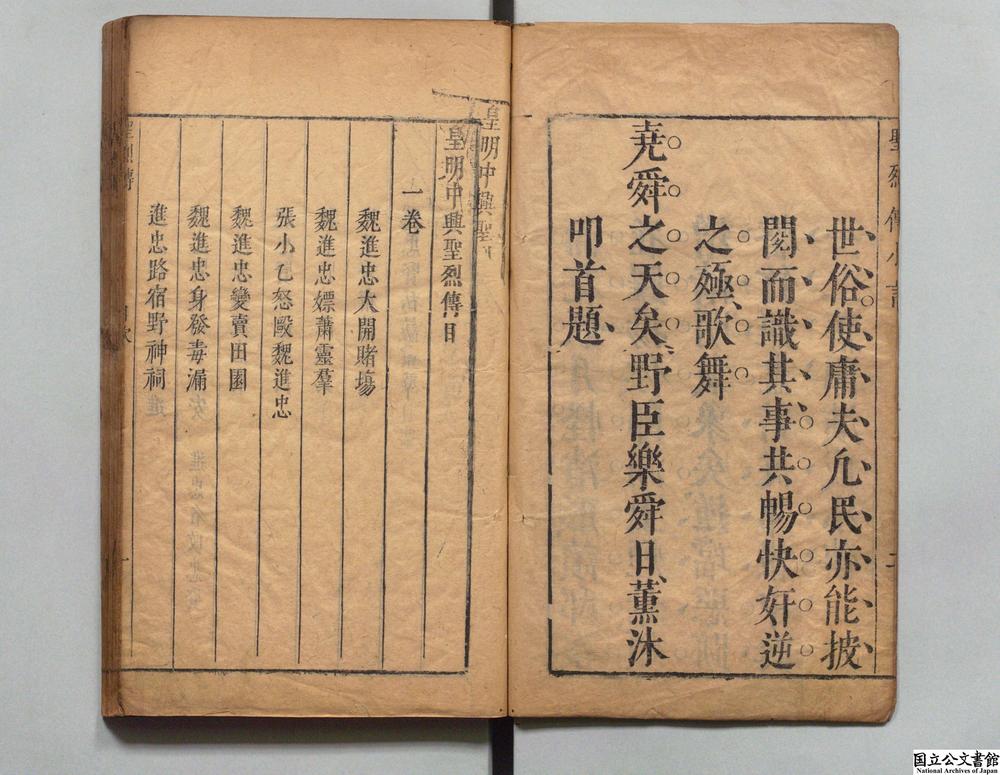 聖烈傳小言
世俗使庸夫凢民亦能披
閱而識其事共暢快奸逆
之殛歌舞
堯舜之天矣野臣樂舜日薰沐
叩首題
二
皇明中興聖
皇明中興聖烈傳目
一卷
魏進忠大開賭塲
魏進忠嫖蕭靈羣
張小乙怒毆魏進忠
魏進忠變賣田園
魏進忠身發毒漏
進忠路宿野神祠
聖烈傳
目次
一
国立公文書館
National Archives of Japan